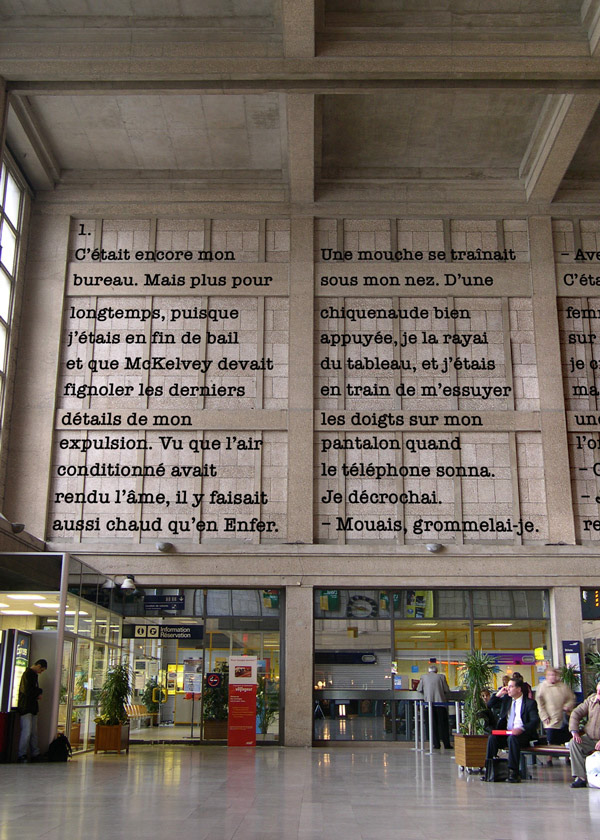 1.
C'était encore mon
bureau. Mais plus pour
longtemps, puisque
j'étais en fin de bail
et que McKelvey devait
fignoler les derniers
détails de mon
expulsion. Vu que l'air
conditionné avait
rendu l'âme, il y faisait
aussi chaud qu'en Enfer.
Une mouche se traînait
sous mon nez. D'une
chiquenaude bien
appuyée, je la rayai
du tableau, et j'étais
en train de m'essuyer
les doigts sur mon
pantalon quand
le téléphone sonna.
Je décrochai.
– Mouais, grommelai-je.
– Ave
C'éta
fem
sur
je c
ma
un
l'o
–
–
re
Information
Réservation